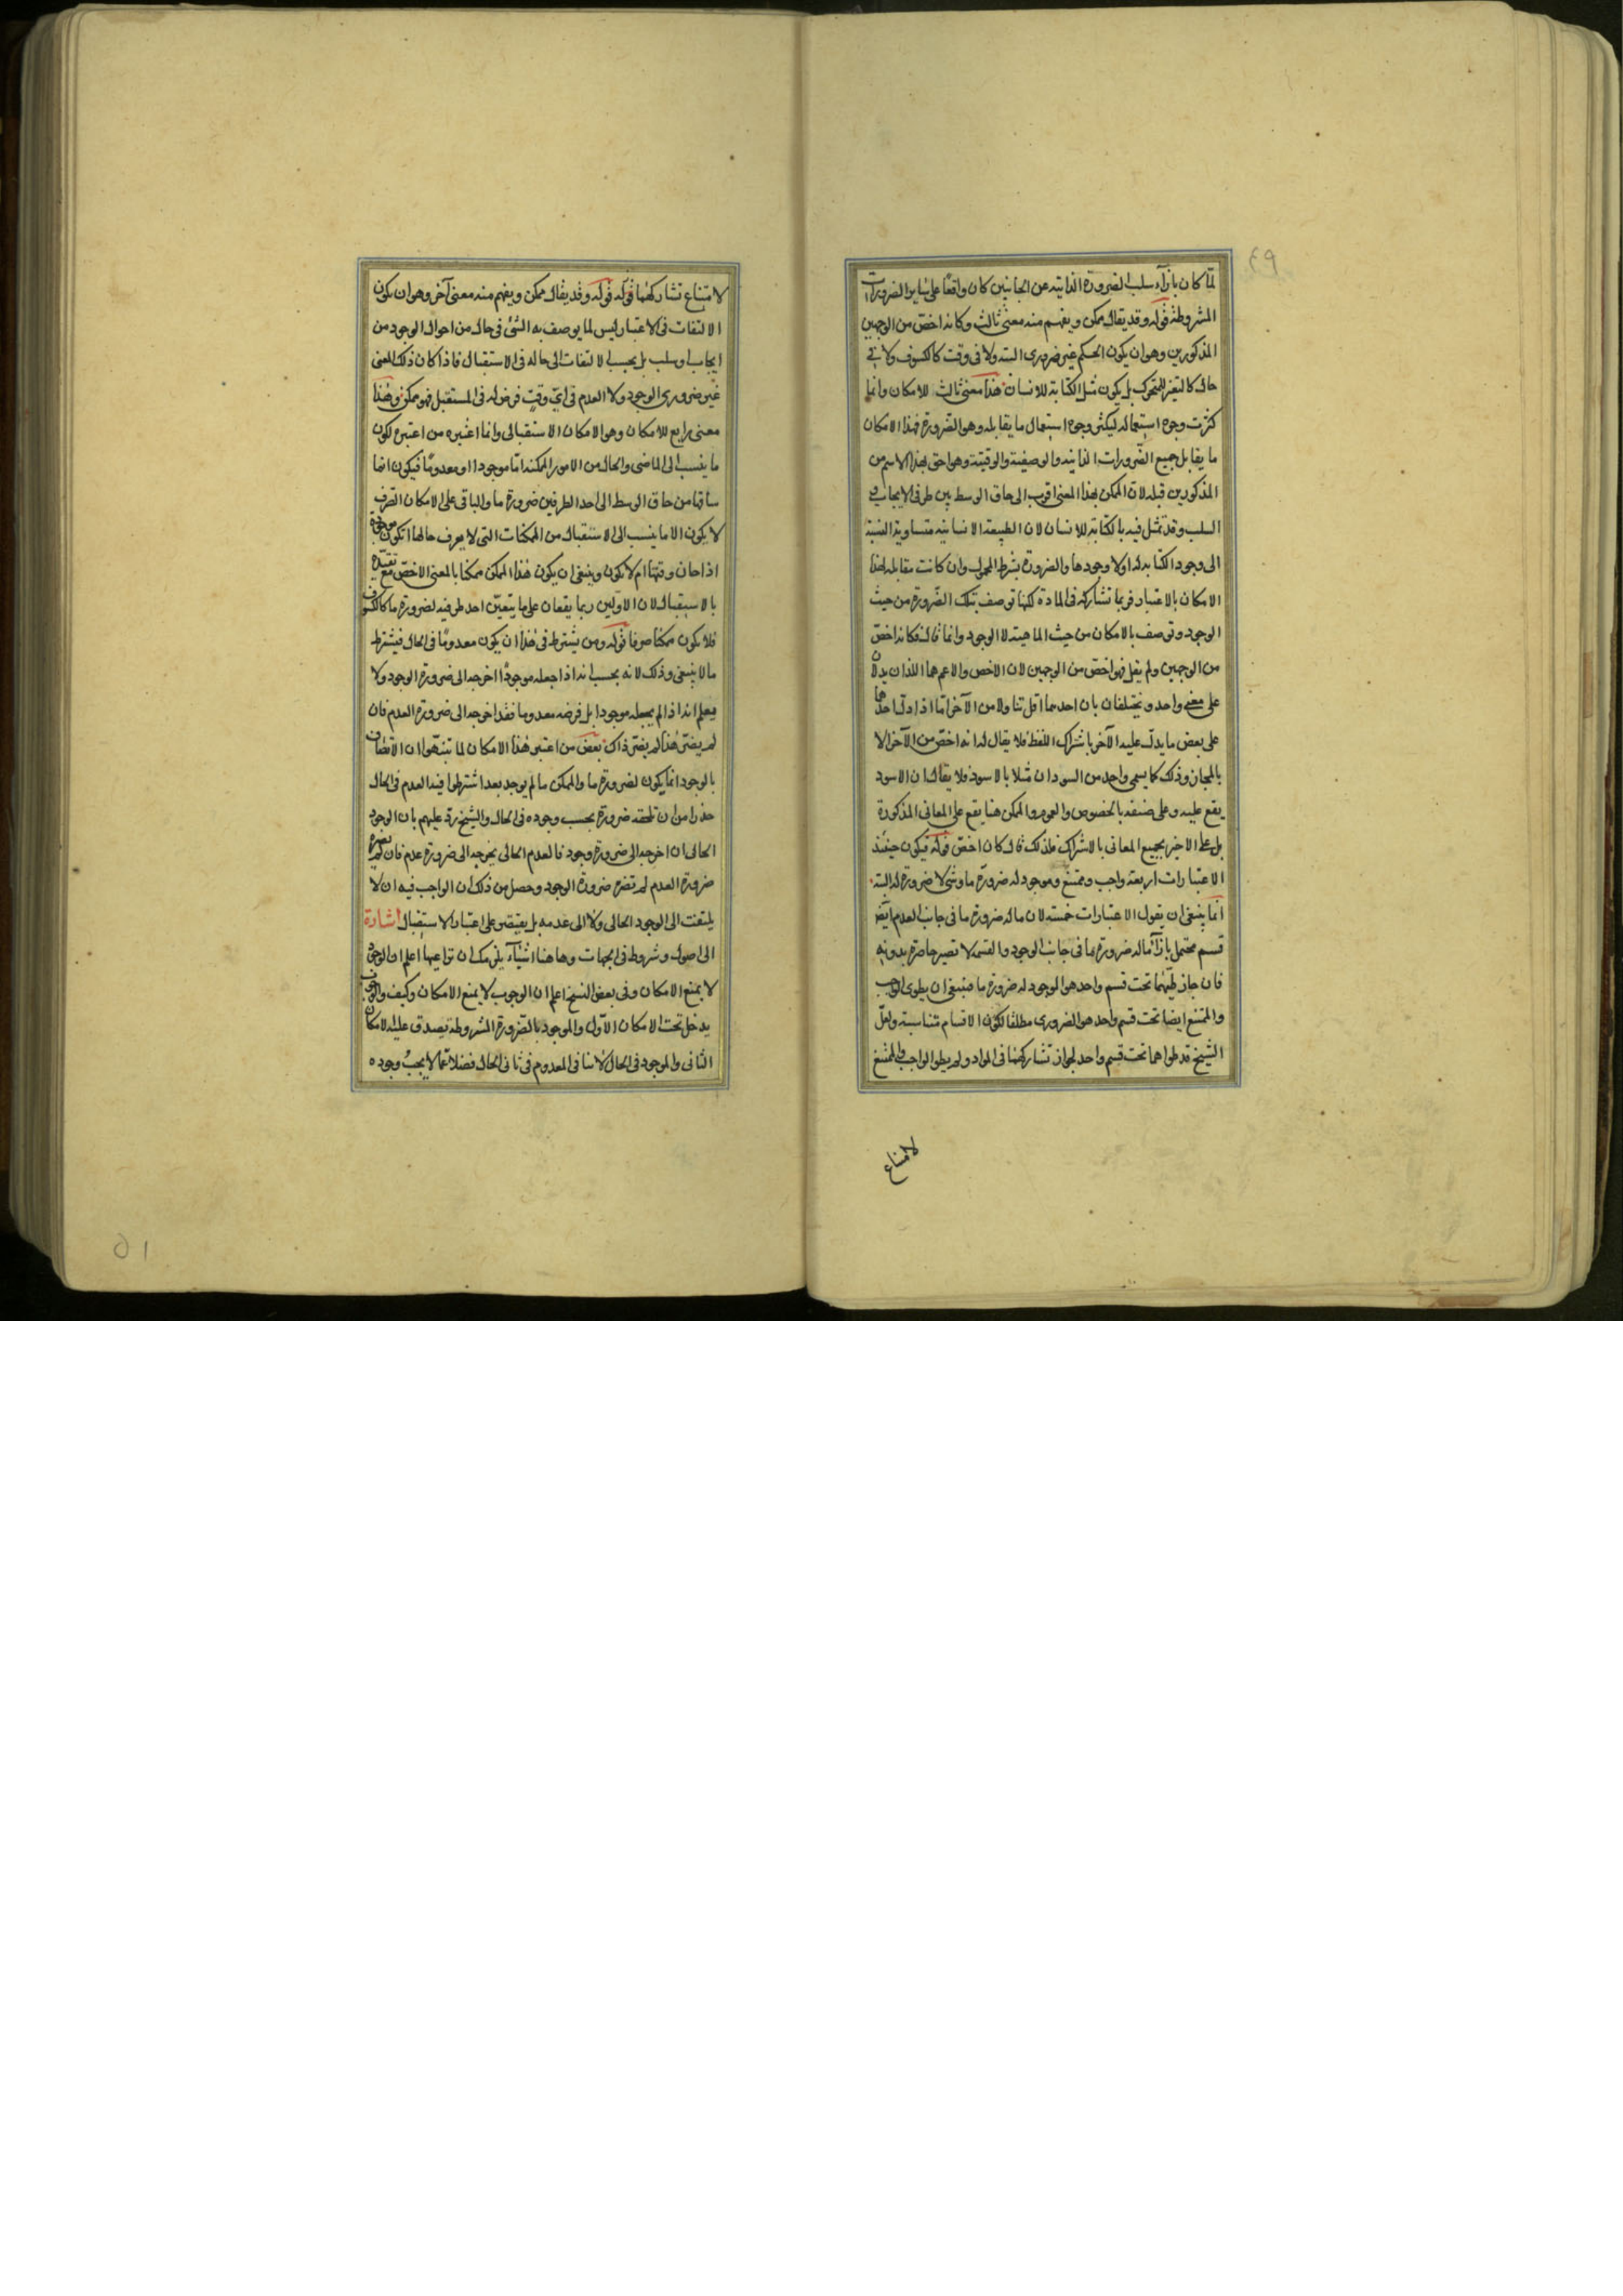 لما كان بازآء سلب الضرورة الذاتية عن الجانبين كان واقعًا على سائر الضرورات
المشروطة قوله وقد يقال ممكن ويفهم منه معنى ثالث وكانه اخص من الوجهين
المذكورين وهو ان يكون الحكم غير ضروري البتة ولا في وقت كالكسوف ولا في
حال كالتغير للمتحرك بل يكون مثل الكتابة للانسان هذا معنى ثالث للامكان وانما
كثرت وجوه استعماله ليكثر وجوه استعمال ما يقابله وهو الضرورة فهذا الامكان
ما يقابل جميع الضرورات الذاتية والوصفية والوقتية وهو احق بهذا الاسم من
المذكورين قبله لان الممكن بهذا المعنى اقرب الى حاق الوسط بين طرفي الايجاب و
السلب وقد تمثل فيه بالكتابة للانسان لان الطبيعة الانسانية متساوية النسبة
الى وجود الكتابة له اولا وجودها والضرورة بشرط المحمول وان كانت مقابلة لهذا
الامكان بالاعتبار فربما تشاركه في المادة لكنها توصف بتلك الضرورة من حيث
الوجود وتوصف بالامكان من حيث الماهية لا الوجود وانما قال فكانه اخص
من الوجهين ولم يقل فهو اخص من الوجهين لان الاخص والاعم هما اللذان يدلان
على معنى واحد ويختلفان بان احدهما اقل تناولا من الآخر اما اذا دل احدهما
على بعض ما يدل عليه الآخر باشتراك اللفظ فلا يقال له انه اخص من الآخر الا
بالمجاز وذلك كما يسمى واحد من السودان مثلا بالاسود فلا يقال ان الاسود
يقع عليه وعلى صنفه بالخصوص والعموم والممكن هنا يقع على المعاني المذكورة
بل على الاخير بجميع المعاني بالاشتراك فلذلك قال كان اخص قوله فيكون حينئذ
الاعتبارات اربعة واجب وممتنع وموجود له ضرورة ما وشي لا ضرورة له البتة
انما ينبغي ان يقول الاعتبارات خمسة لان ما له ضرورة ما في جانب العدم ايضا
قسم محتمل بازآء ما له ضرورة ما في جانب الوجود والقسمة لا تصير حاصرة بدونه
فان جاز طيهما تحت قسم واحد هو الموجود له ضرورة ما فينبغي ان يطوى الواجب
والممتنع ايضا تحت قسم واحد هو الضروري مطلقا لتكون الاقسام متناسبة ولعل
الشيخ قد طواهما تحت قسم واحد لجواز تشاركهما في المواد ولم يطو الواجب والممتنع
لامتناع
لامتناع تشاركهما قوله وقد يقال ممكن ويفهم منه معنى آخر وهو ان يكون
الالتفات في الاعتبار ليس لما يوصف به الشئ في حال من احوال الوجود من
ايجاب او سلب بل بحسب الالتفات الى حاله في الاستقبال فاذا كان ذلك المعنى
غير ضروري الوجود ولا العدم في اي وقت فرض له في المستقبل فهو ممكن وهذا
معنى رابع للامكان وهو الامكان الاستقبالي وانما اعتبره من اعتبره لكون
ما ينسب الى الماضي والحال من الامور الممكنة اما موجودا او معدومًا فيكون انما
ساقها من حاق الوسط الى احد الطرفين ضرورة ما والباقي على الامكان الصرف
لا يكون الا ما ينسب الى الاستقبال من الممكنات التي لا يعرف حالها اتكون موجودة
اذا حان وقتها ام لا تكون وينبغي ان يكون هذا الممكن ممكنا بالمعنى الاخص مع تقييده
بالاستقبال لان الاولين ربما يقعان على ما يتعين احد طرفيه لضرورة ما كالكسوف
فلا يكون ممكنا صرفا قوله ومن يشترط في هذا ان يكون معدومًا في الحال فيشترط
ما لا ينبغي وذلك لانه يحسب انه اذا جعله موجودًا اخرجه الى ضرورة الوجود ولا
يعلم انه اذا لم يجعله موجودا بل فرضه معدوما فقد اخرجه الى ضرورة العدم فان
لم يضر هذا لم يضر ذاك بعض من اعتبر هذا الامكان لما تنبهوا ان الاتصاف
بالوجود انما يكون لضرورة ما والممكن ما لم يوجد بعد اشترطوا فيه العدم في الحال
حذرا من ان تلحقه ضرورة بحسب وجوده في الحال والشيخ رد عليهم بان الوجود
الحالى ان اخرجه الى ضرورة وجود فالعدم الحالى يخرجه الى ضرورة عدم فان لم يضره
ضرورة العدم لم تضره ضرورة الوجود وحصل من ذلك ان الواجب فيه ان لا
يلتفت الى الوجود الحالى ولا الى عدمه بل يقتصر على اعتبار الاستقبال اشارة
الى اصول وشروط في الجهات وهاهنا اشيآء يلزمك ان تراعيها اعلم ان الوجود
لا يمنع الامكان وفي بعض النسخ اعلم ان الوجوب لا يمنع الامكان وكيف والوجوب
يدخل تحت الامكان الاول والموجود بالضرورة المشروطة يصدق عليه الامكان
الثاني والموجود في الحال لا ينافي المعدوم في ثاني الحال فضلا عما لا يجب وجوده